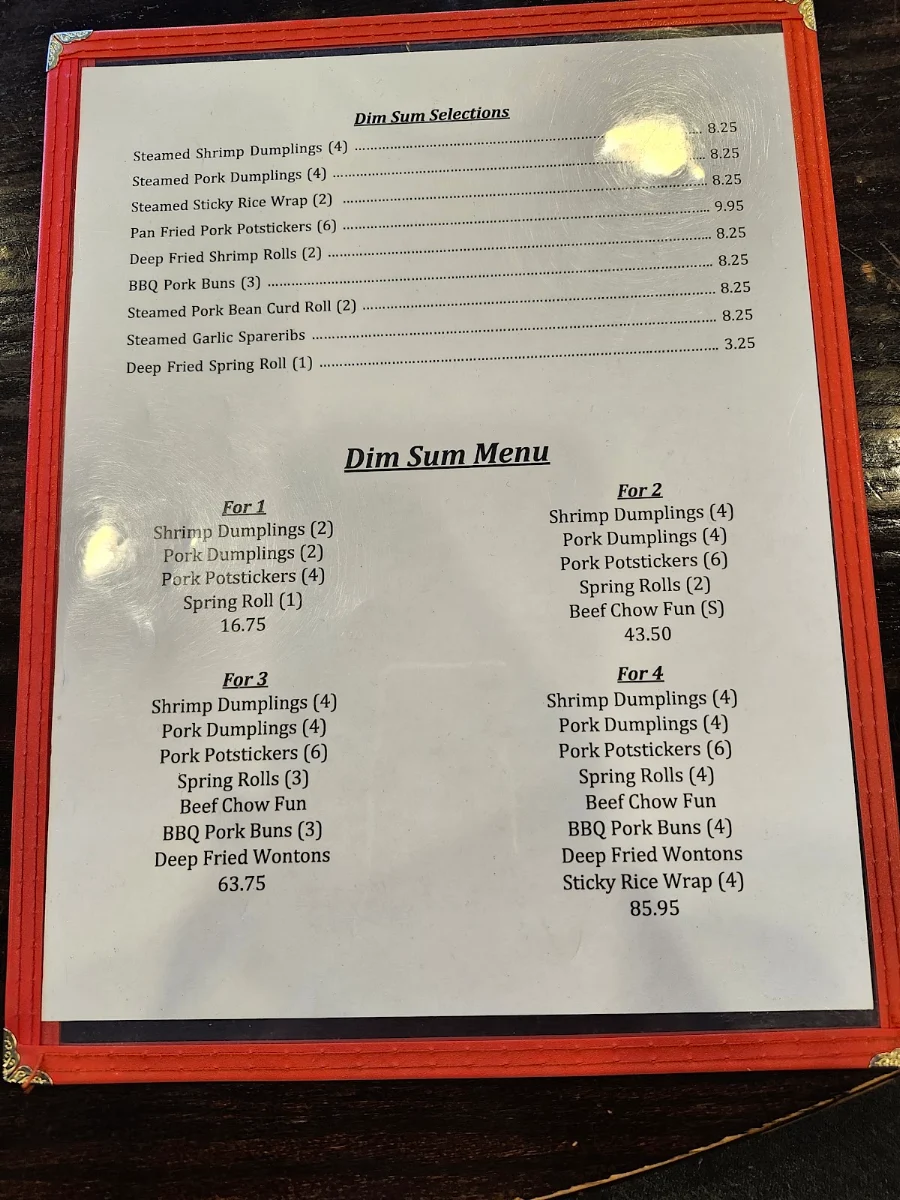 Dim Sum Selections
Steamed Shrimp Dumplings (4) ........ 8.25
Steamed Pork Dumplings (4) ........ 8.25
Steamed Sticky Rice Wrap (2) ........ 8.25
Pan Fried Pork Potstickers (6) ........ 9.95
Deep Fried Shrimp Rolls (2) ........ 8.25
BBQ Pork Buns (3) ........ 8.25
Steamed Pork Bean Curd Roll (2) ........ 8.25
Steamed Garlic Spareribs ........ 8.25
Deep Fried Spring Roll (1) ........ 3.25
Dim Sum Menu
For 1
Shrimp Dumplings (2)
Pork Dumplings (2)
Pork Potstickers (4)
Spring Roll (1)
16.75
For 2
Shrimp Dumplings (4)
Pork Dumplings (4)
Pork Potstickers (6)
Spring Rolls (2)
Beef Chow Fun (S)
43.50
For 3
Shrimp Dumplings (4)
Pork Dumplings (4)
Pork Potstickers (6)
Spring Rolls (3)
Beef Chow Fun
BBQ Pork Buns (3)
Deep Fried Wontons
63.75
For 4
Shrimp Dumplings (4)
Pork Dumplings (4)
Pork Potstickers (6)
Spring Rolls (4)
Beef Chow Fun
BBQ Pork Buns (4)
Deep Fried Wontons
Sticky Rice Wrap (4)
85.95